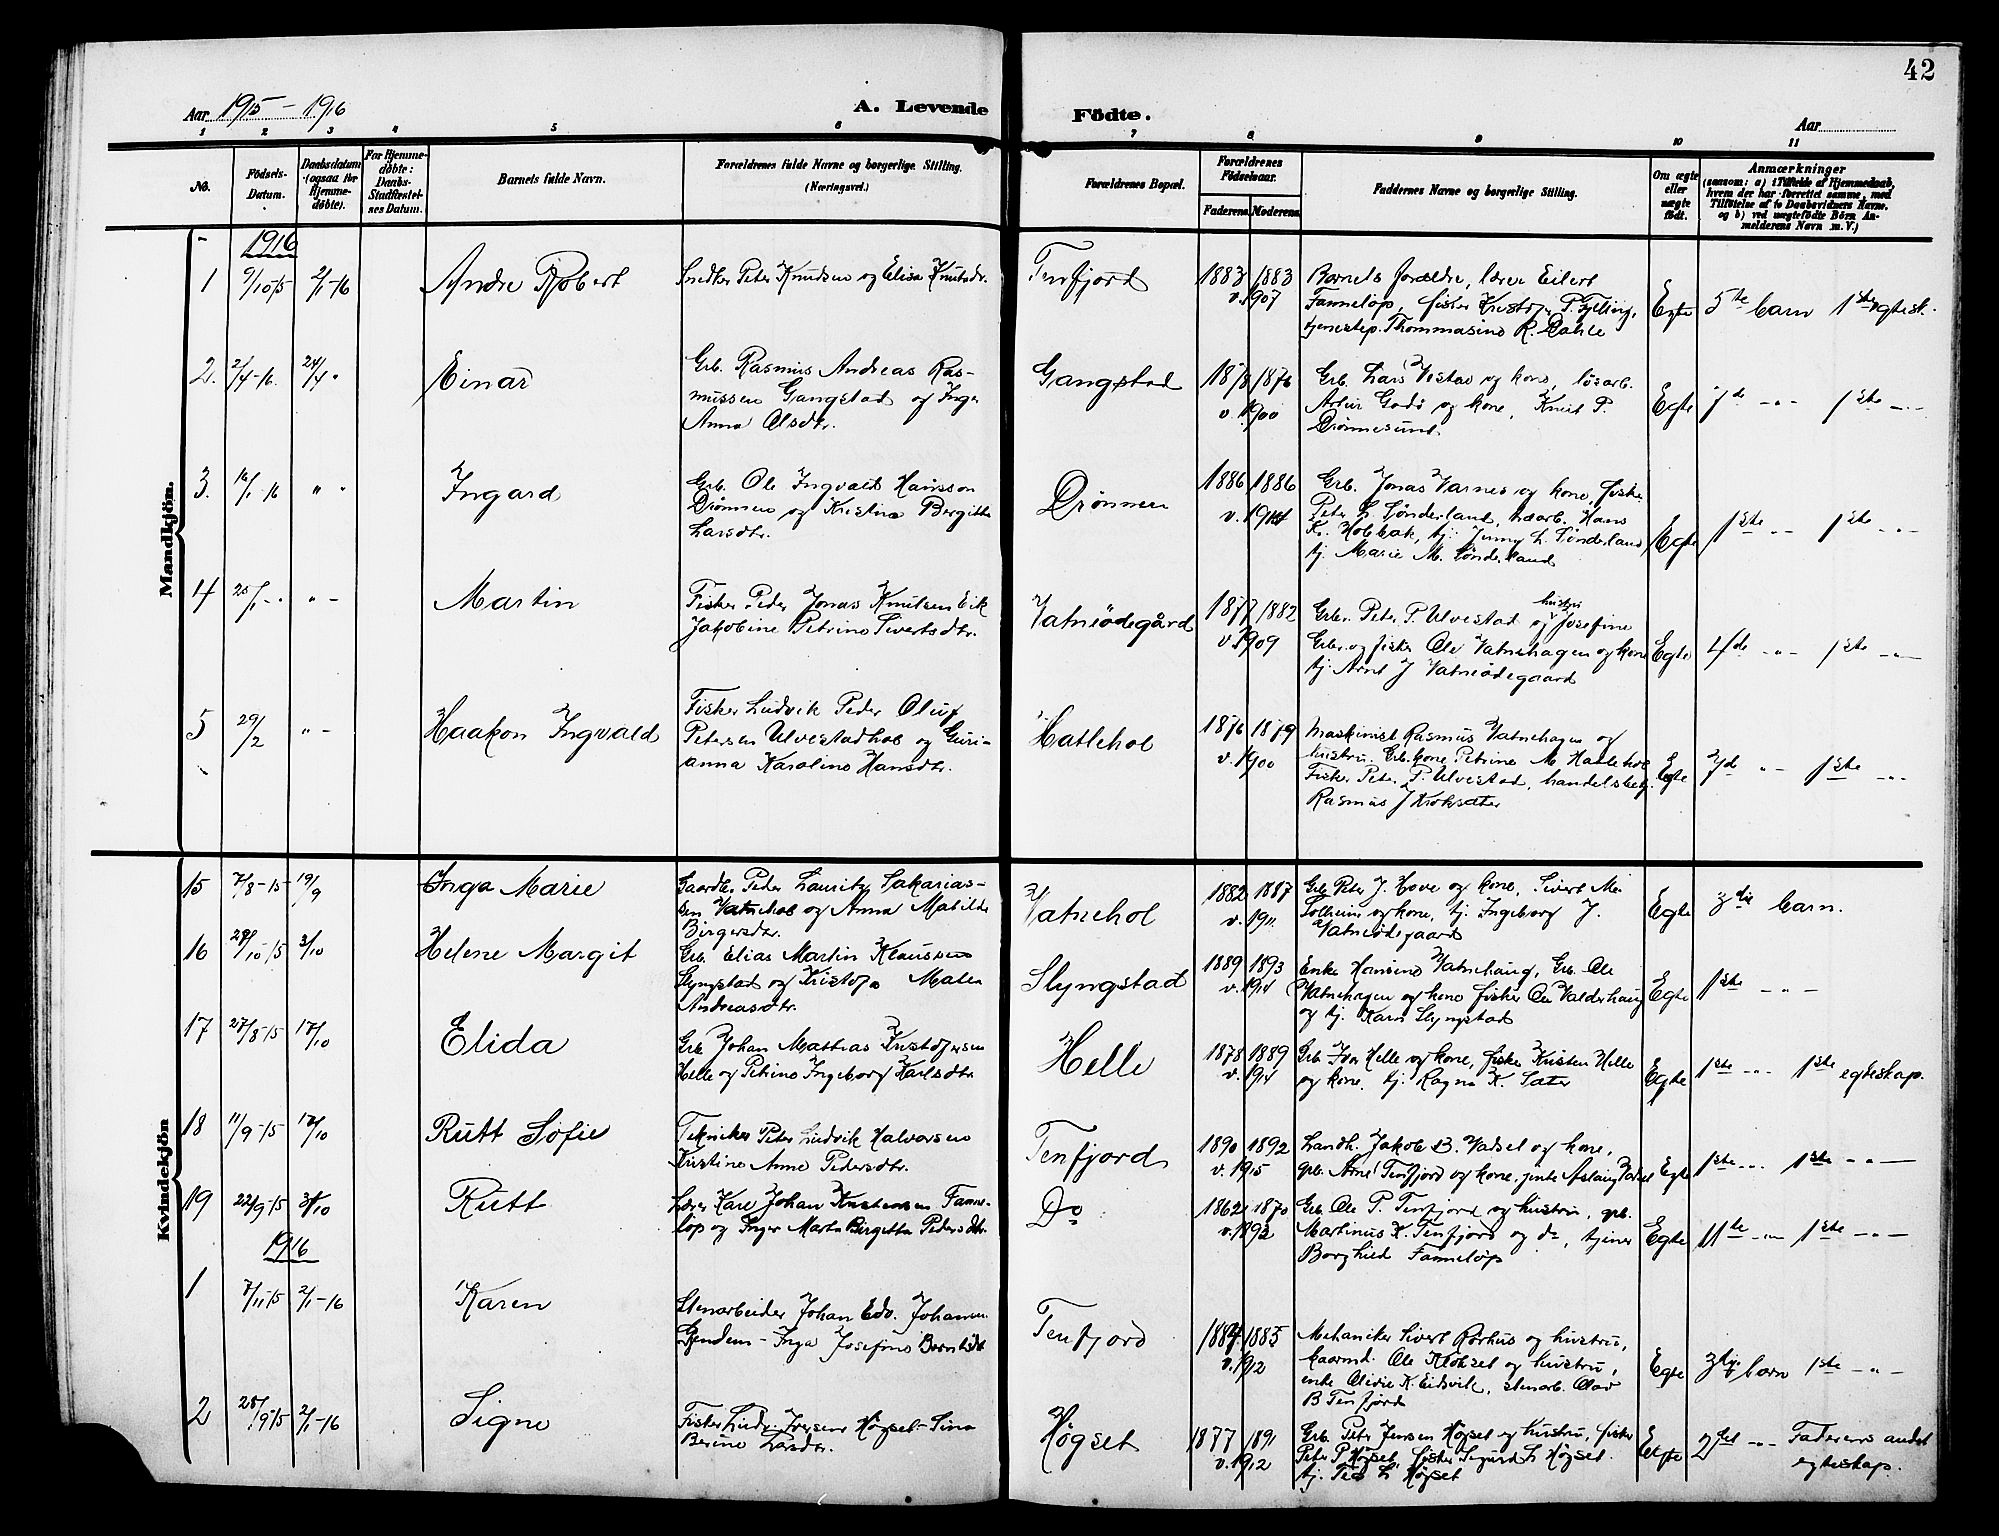 42
Aar 1915 - 1916
A. Levende Födte.
Aar
1 2 3 4 5 6 7 8 9 10 11
No.
Födsels-
Datum.
Daabsdatum
(ogsaa for
Hjemme-
døbte).
For Hjemme-
døbte:
Daabs-
Stadfæstel-
ses Datum.
Barnets fulde Navn.
Forældrenes fulde Navne og borgerlige Stilling.
(Næringsvei.)
Forældrenes Bopæl.
Forældrenes
Födselsaar.
Faderens. Moderens.
Faddernes Navne og borgerlige Stilling.
Om ægte
eller
uægte
födt.
Anmærkninger
(saasom: a) i Tilfælde af Hjemmedaab,
hvem der har forrettet samme, med
Tilföielse af to Daabsvidners Navne.
og b) ved uægtefödte Börn An-
melderens Navn m. V.)
Mandkjön.
1916
1 9/10-15 2/1-16 Andre Robert
Snedker Peter Knudsen og Elisa Knutsdr.
Tenfjord
1883 1883
v. 1907
Barnets forældre, lærer Eilert
Fanneløp, fisker Kristof. P. Fjelling,
tjenestep. Thommasine R. Dahle
Egte 5te barn 1ste egtesk.
2. 2/4-16. 24/4 " Einar
Grb. Rasmus Andreas Ras-
mussen Gangstad og Inger
Anna Olsdtr.
Gangstad
1878 1876
v. 1900
Grb. Lars Vestad og kone, løsarb.
Artur Godø og kone, Knut P.
Drønnesund.
Egte 7de - " - 1ste - " -
3. 16/1-16 " " Ingard
Grb. Ole Ingvald Hansson
Drønnen og Kristine Bergitte
Larsdtr.
Drønnen
1886 1886
v. 1914
Grb. Jonas Varnes og kone, fisker
Peter L. Sønderland, træarb. Hans
Kr. Holbak, tj. Jenny L. Sønderland
tj. Marie M. Sønderland
Egte 1ste - " - 1ste - " -
4 20/1 - " - " - Martin
Fisker Peder Jonas Knutsen Eik
Jakobine Petrine Sivertsdtr.
Vatneødegård
1877 1882
v. 1909
Grbr. Peter P. Ulvestad og hustru Josefine
Grbr. og fisker Ole Vatnehagen og kone
tj. Arne J Vatneødegaard
Egte 4de - " - 1ste - " -
5 29/2 " - Haakon Ingvald
Fisker Ludvik Peder Oluf
Petersen Ulvestadhol og Guri-
anna Karoline Hansdtr.
Hatlehol
1876 1879
v. 1900
Maskinist Rasmus Vatnehagen og
hustru. Grb. kone Petrine M Hatlehol
Fisker Peter P. Ulvestad, handelsbetj.
Rasmus J Kroksæter
Egte 7de - " - 1ste - " -
Kvindekjön
15 7/8-15 19/9 Inga Marie
Gaardbr. Peder Lauritz Sakarias-
sen Vatnehol og Anna Matilde
Birgersdtr.
Vatnehol
1882 1887
v. 1911.
Grb Peter J. Hove og kone, Sivert M.
Solheim og kone, tj. Ingeborg J.
Vatneødegaard
Egte 3die barn.
16 28/10-15 3/10 Helene Margit
Grb. Elias Martin Klaussen
Slyngstad og Kristofa Maten
Andreasdtr.
Slyngstad
1889 1893
v. 1914
Enke Hansine Vatnehaug, Grb. Ole
Vatnehagen og kone fisker Ole Valderhaug
og tj. Karn Slyngstad
Egte 1ste - " -
17 27/8-15 17/10 Elida
Grb Johan Mathias Kristofersen
Helle og Petrine Ingeborg Karlsdtr.
Helle
1878 1889
v. 1914
Grb Ivar Helle og kone, fisker Kristen Helle
og kone, tj. Ragna K. Sæter
Egte 1ste - " - 1ste egteskap.
18 11/9-15 17/10 Rutt Sofie
Tekniker Peter Ludvik Halvorsen
Kristine Anne Pedersdtr.
Tenfjord
1890 1892
v. 1915
Landh. Jakob B. Vadset og kone,
grb. Arne Tenfjord og kone, jente Aslaug Vadset
Egte 1ste - " - 1ste - " -
19 22/9-15 31/10 Rutt
Lærer Karl Johan Kristensen Fanne-
løp og Inger Marta Birgitta Pedersdtr.
Do
1862 1870
v. 1892
Grb. Ole P. Tenfjord og hustru, grb.
Martinus K. Tenfjord og do, tjener
Borghild Fanneløp
Egte 11te - " - 1ste - " -
1916
1 7/11-15 2/1-16 Karen
Stenarbeider Johan Edv. Johansen
Gjendem - Inga Josefine Berntsdtr
Tenfjord
1884 1885
v. 1912
Mekaniker Sivert Rørhus og hustru,
Ole Klokset og hustru,
enke Olivie K. Eidsvik, stenarb. Olav
B Tenfjord
Egte 3die barn 1ste - " -
2 28/9-15 2/1-16 Signe
Fisker Ludv. Iversen Høgset - Sina
Berine Larsdtr.
Høgset
1877 1891
v. 1912
Grb. Peter Jensen Høgset og hustru, fisker
Peter P Høgset, fisker Sigurd L Høgset.
tj. Tea L Høgset
Egte 2det - " - Faderens andet
egteskap.